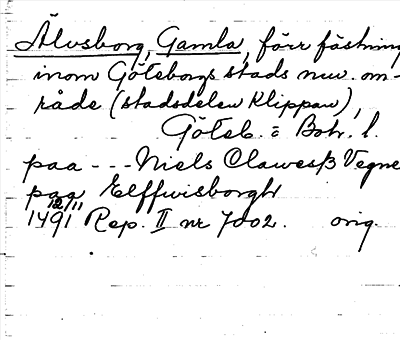 Älvsborg, Gamla, förr fästning
inom Göteborgs stads nuv. om-
råde (stadsdelen Klippan),
Göteb. o Boh. l.
paa --- Niels Clawesß Vegne
paa Elffwisborgh
12/11
1491 Rep. II nr 7002. orig.